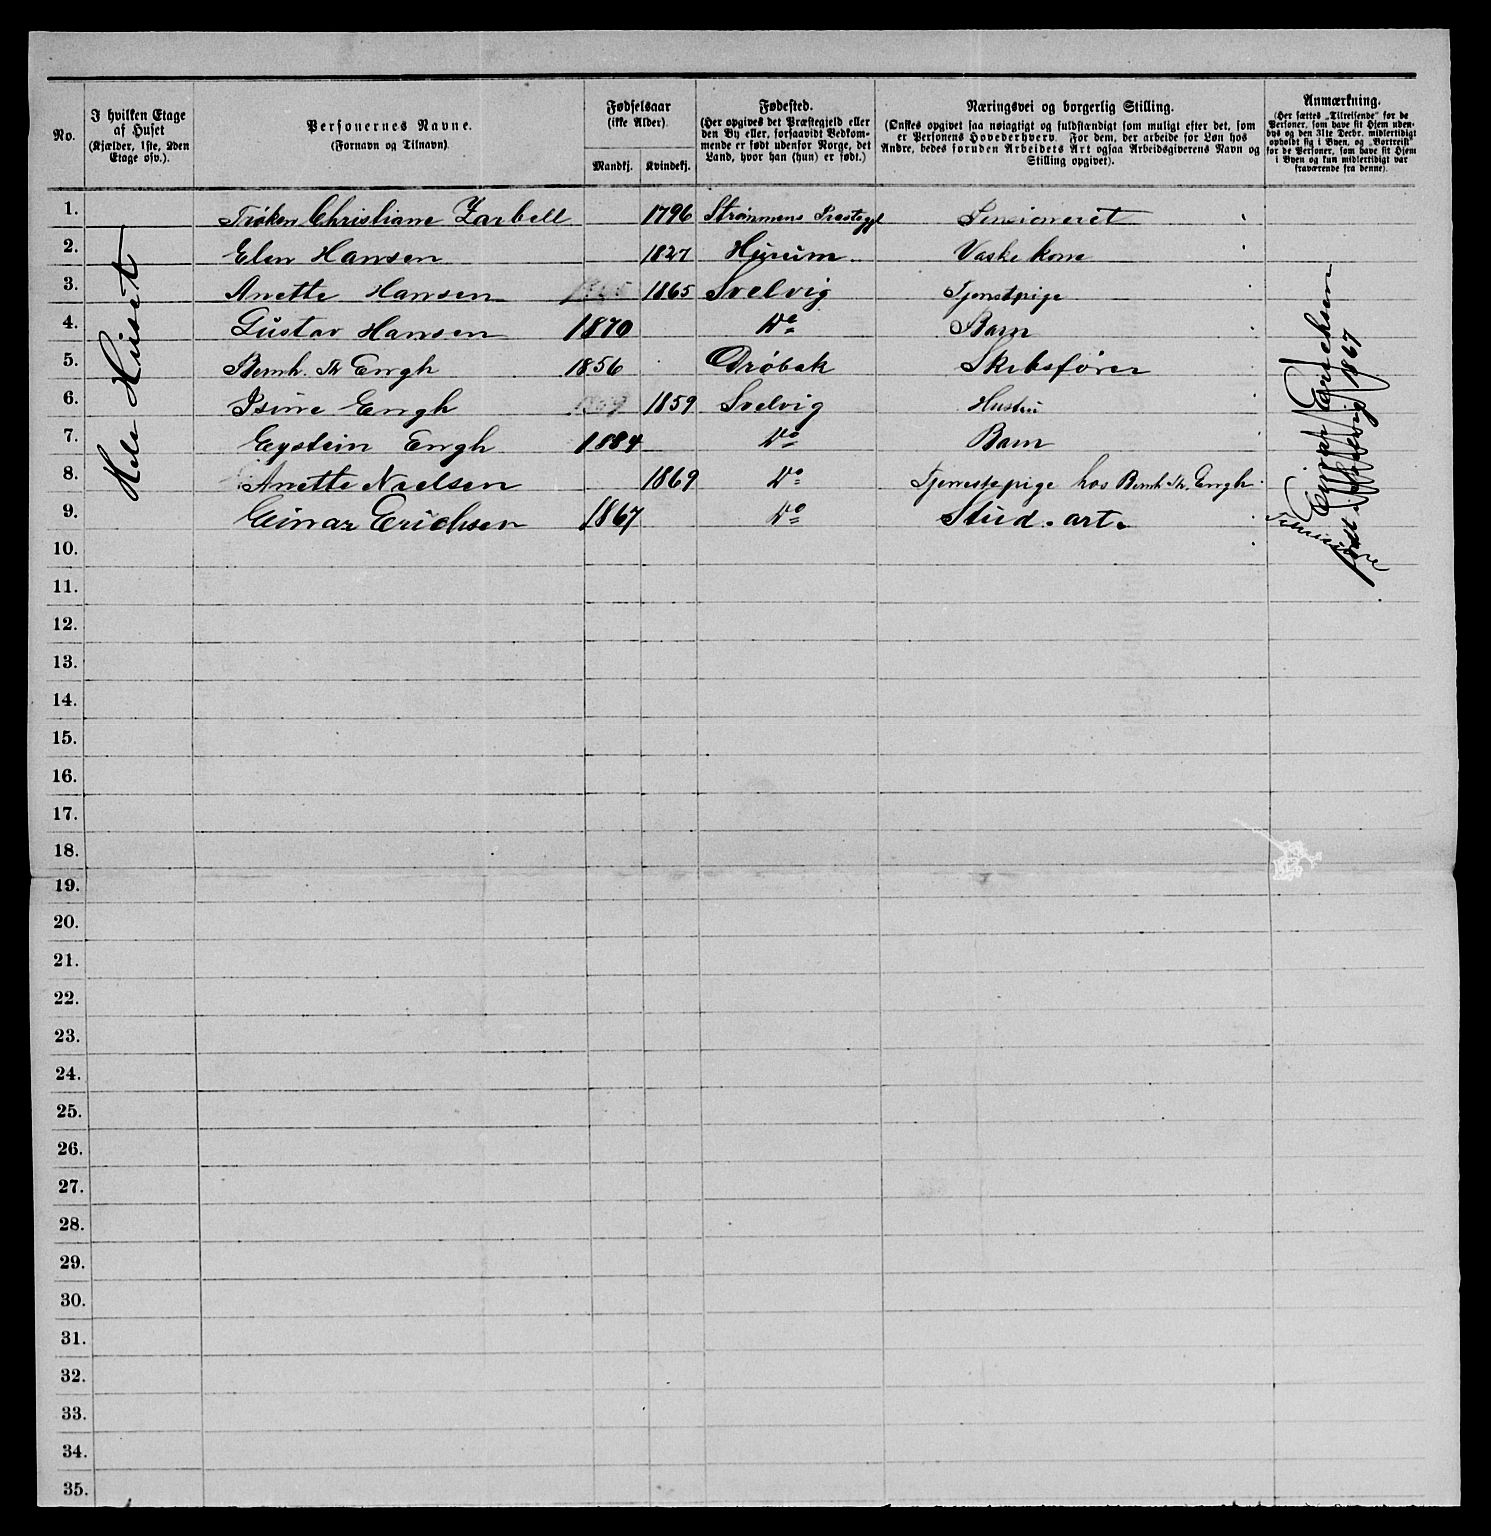 No.
I hvilken Etage af Huset (Kjælder, 1ste, 2den Etage osv.).
Personernes Navne. (Fornavn og Tilnavn).
Fødselsaar (ikke Alder).
Mandkj. Kvindekj.
Fødested. (Her opgives det Præstegjeld eller den By eller, forsaavidt Vedkommende er født udenfor Norge, det Land, hvor han (hun) er født.)
Næringsvei og borgerlig Stilling. (Ønskes opgivet saa nøiagtigt og fuldstændigt som muligt efter det, som er Personens Hovederhverv. For dem, der arbeide for Løn hos Andre, bedes foruden Arbeidets Art ogsaa Arbeidsgiverens Navn og Stilling opgivet).
Anmærkning. (Her sættes „Tilreisende" for de Personer, som have sit Hjem udenbys og den 31te Decbr. midlertidigt opholdt sig i Byen, og „Bortreist" for de Personer, som have sit Hjem i Byen og kun midlertidigt var fraværende fra denne).
Hele Huset
1. Frøken Christiane Zarbell 1796 Strømmens Prestegjl Pensioneret
2. Elen Hansen 1827 Hurum Vaskekone
3. Anette Hansen 1865 Svelvig Tjenstpige
4. Gustav Hansen 1870 Do Barn
5. Bernh. Th Engh 1856 Drøbak Skibsfører
6. Isine Engh 1859 Svelvig Hustru
7. Eystein Engh 1884 Do Barn
8. Anette Nielsen 1869 Do Tjenestepige hos Bernh. Th. Engh
9. Einar Erichsen 1867 Do Stud. art.
Tilreisende
10.
11.
12.
13.
14.
15.
16.
17.
18.
19.
20.
21.
22.
23.
24.
25.
26.
27.
28.
29.
30.
31.
32.
33.
34.
35.